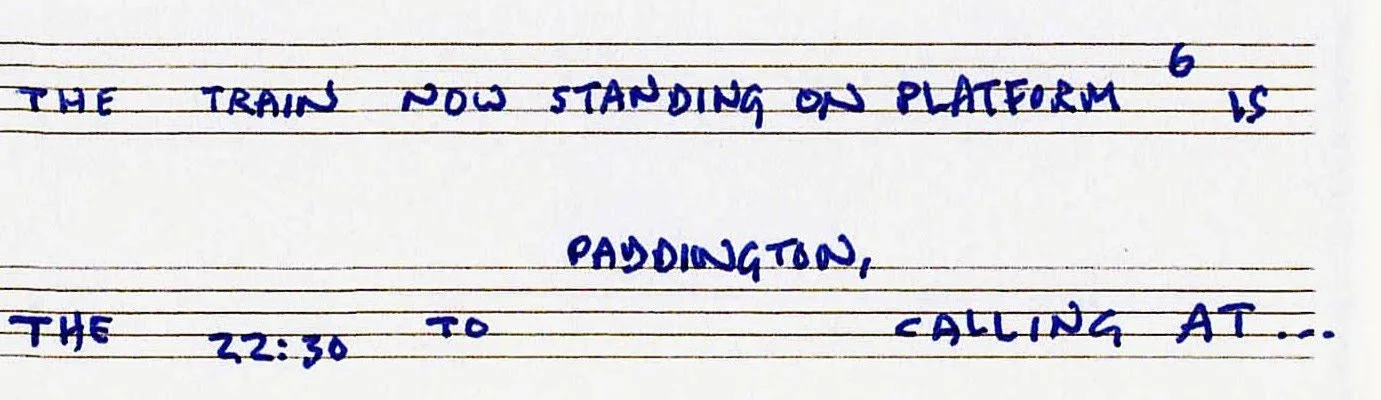 THE TRAIN NOW STANDING ON PLATFORM 6 IS
THE 22:30 TO PADDINGTON, CALLING AT...